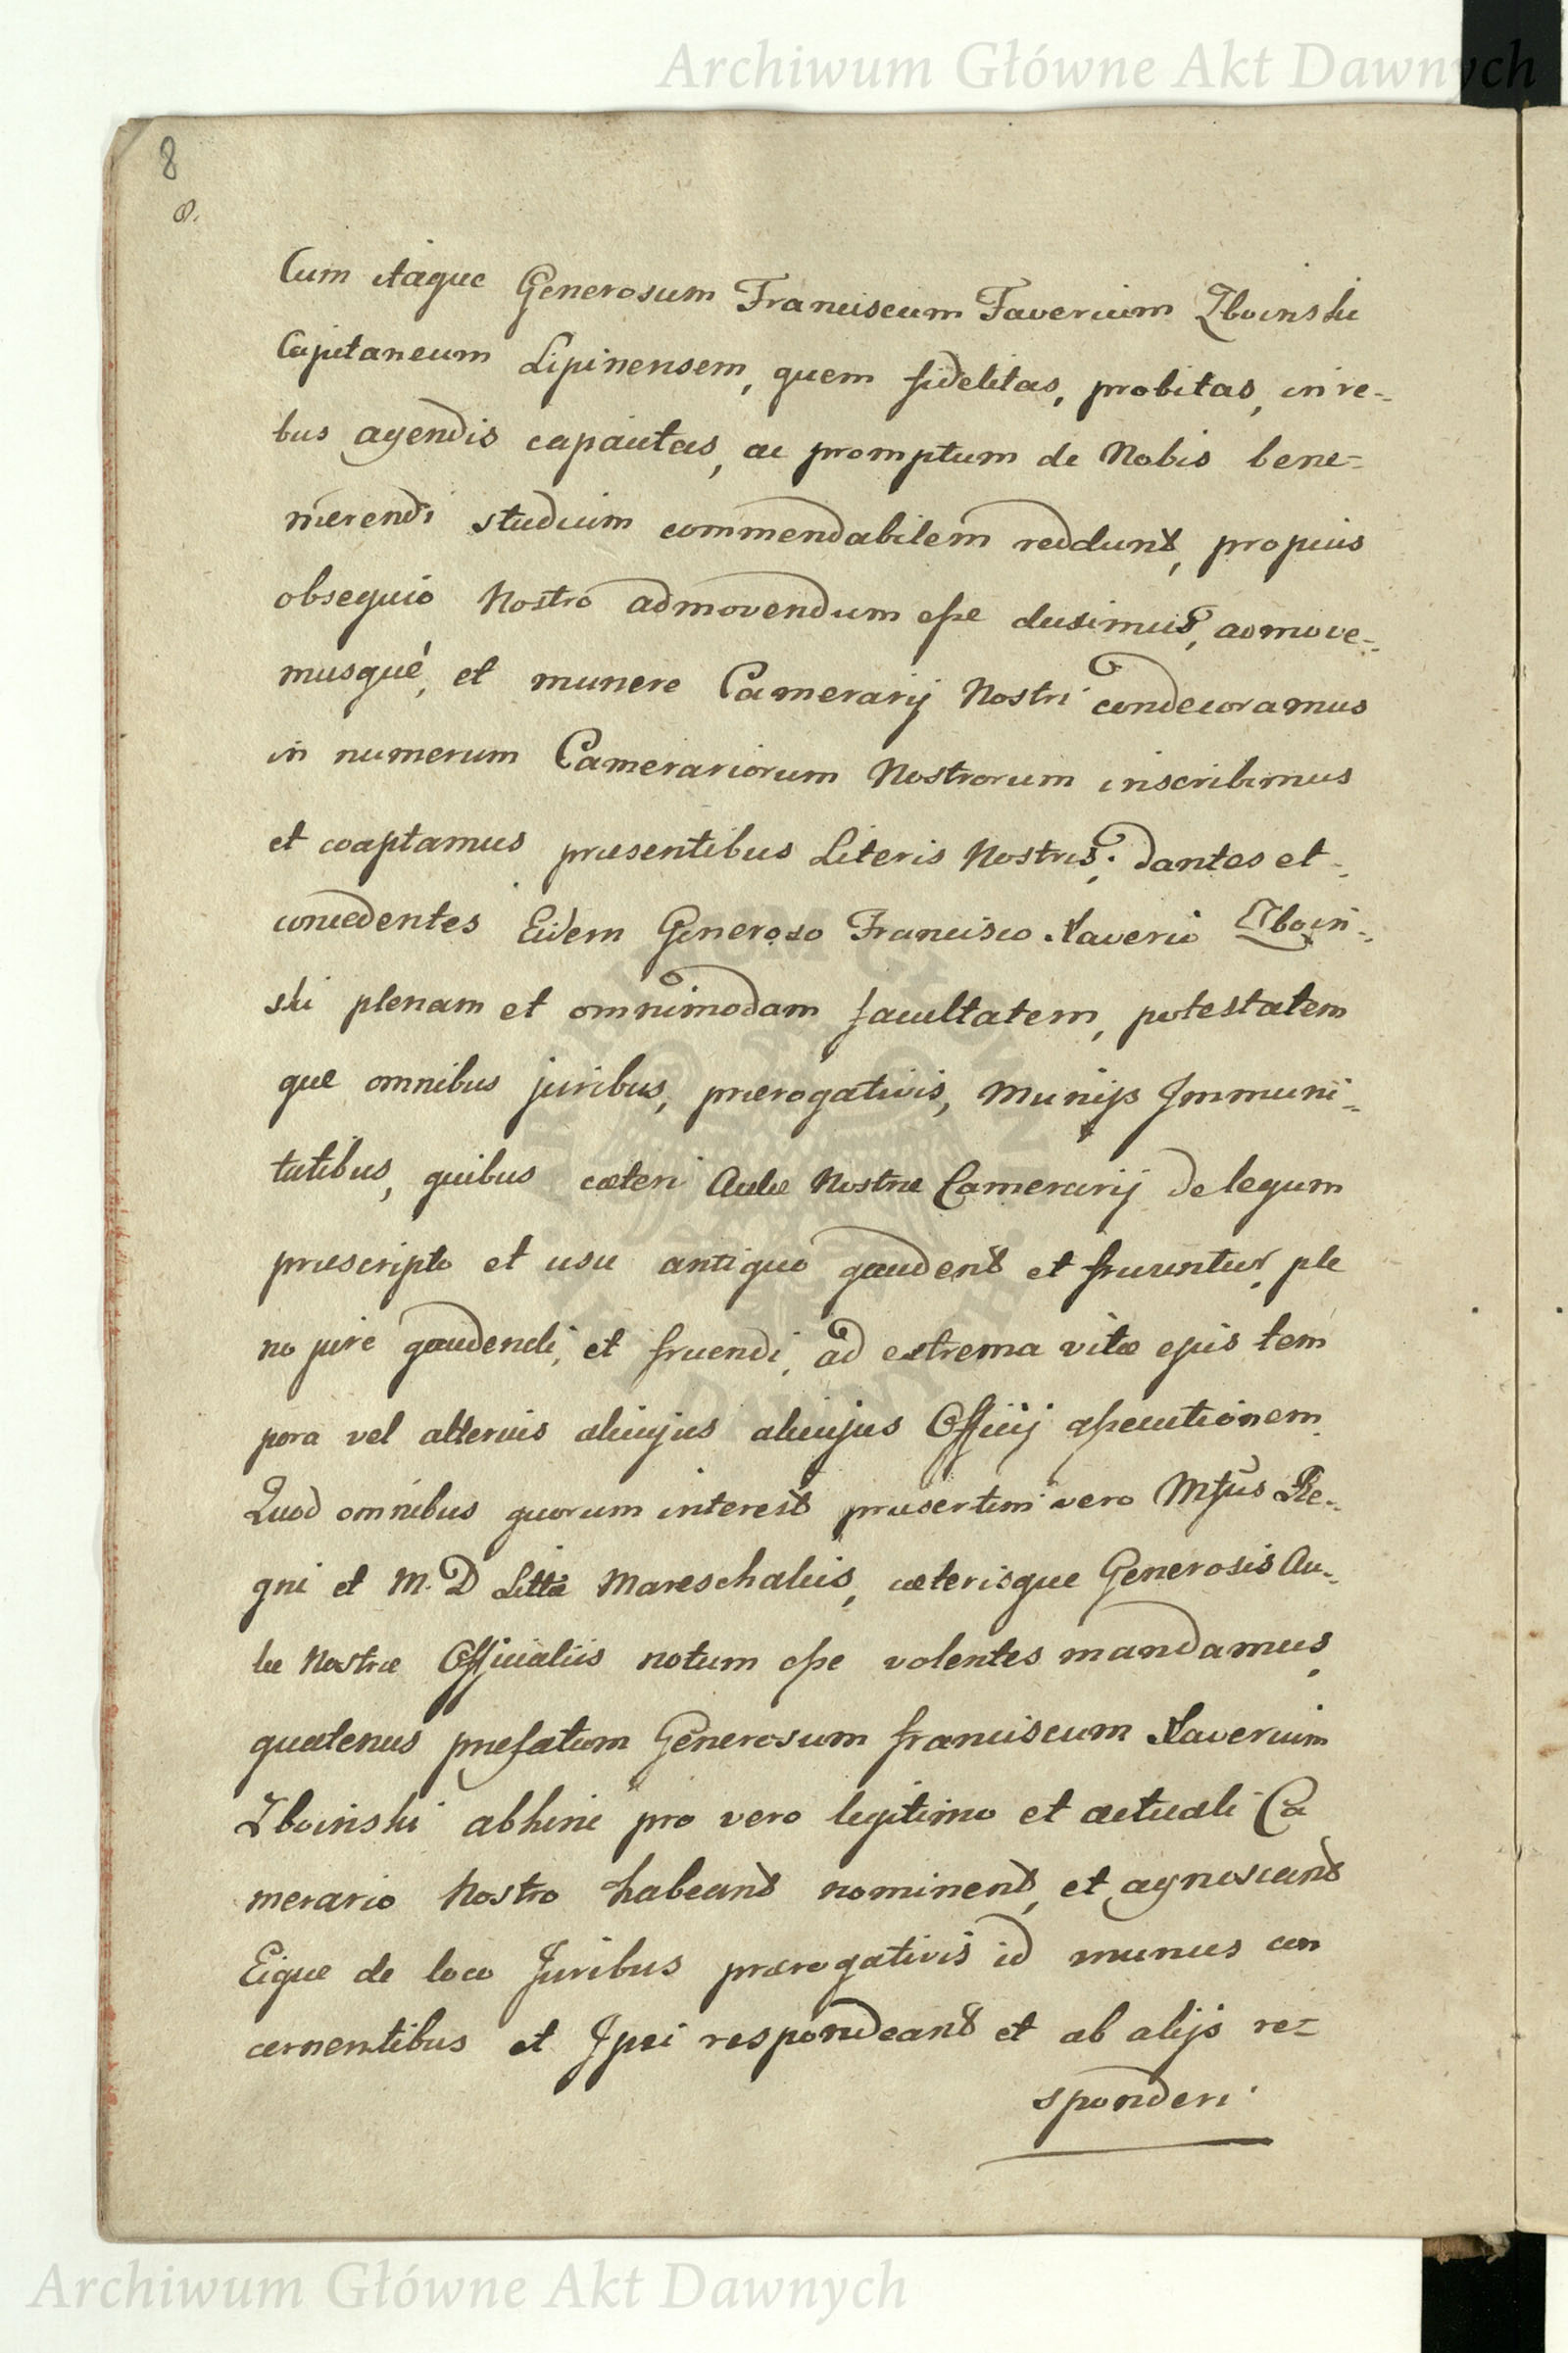 Archiwum Główne Akt Dawnych
8
8.
Cum itaque Generosum Franciscum Xaverium Zboinski
Capitaneum Lipinensem, quem fidelitas, probitas, in re-
bus agendis capacitas, ac promptum de Nobis bene-
merendi studium commendabilem reddunt, propius
obsequio Nostro admovendum esse duximus, admove-
musque, et munere Camerarij Nostri condecoramus
in numerum Camerariorum Nostrorum inscribimus
et coaptamus præsentibus Literis Nostris; dantes et
concedentes Eidem Generoso Francisco Xaverio Zboin-
ski plenam et omnimodam facultatem, potestatem
que omnibus juribus, prærogativis, Munijs Immuni-
tatibus, quibus cæteri Aulæ Nostræ Camerarij de legum
præscripto et usu antiquo gaudent et fruuntur, ple
no jure gaudendi, et fruendi, ad extrema vitæ ejus tem
pora vel alterius alicujus alicujus Officij assecutionem.
Quod omnibus quorum interest præsertim vero Mfcis Re-
gni et M. D Litt. Mareschalcis, cæterisque Generosis Au-
læ Nostræ Officialiis notum esse volentes mandamus,
quatenus præfatum Generosum Franciscum Xaverium
Zboinski abhinc pro vero legitimo et actuali Ca
merario Nostro habeant nominent, et agnoscant
Eique de loco Juribus prærogativis id munus con
cernentibus et Ipsi respondeant et ab alijs re-
sponderi
ARCHIWUM GŁÓWNE AKT DAWNYCH
Archiwum Główne Akt Dawnych